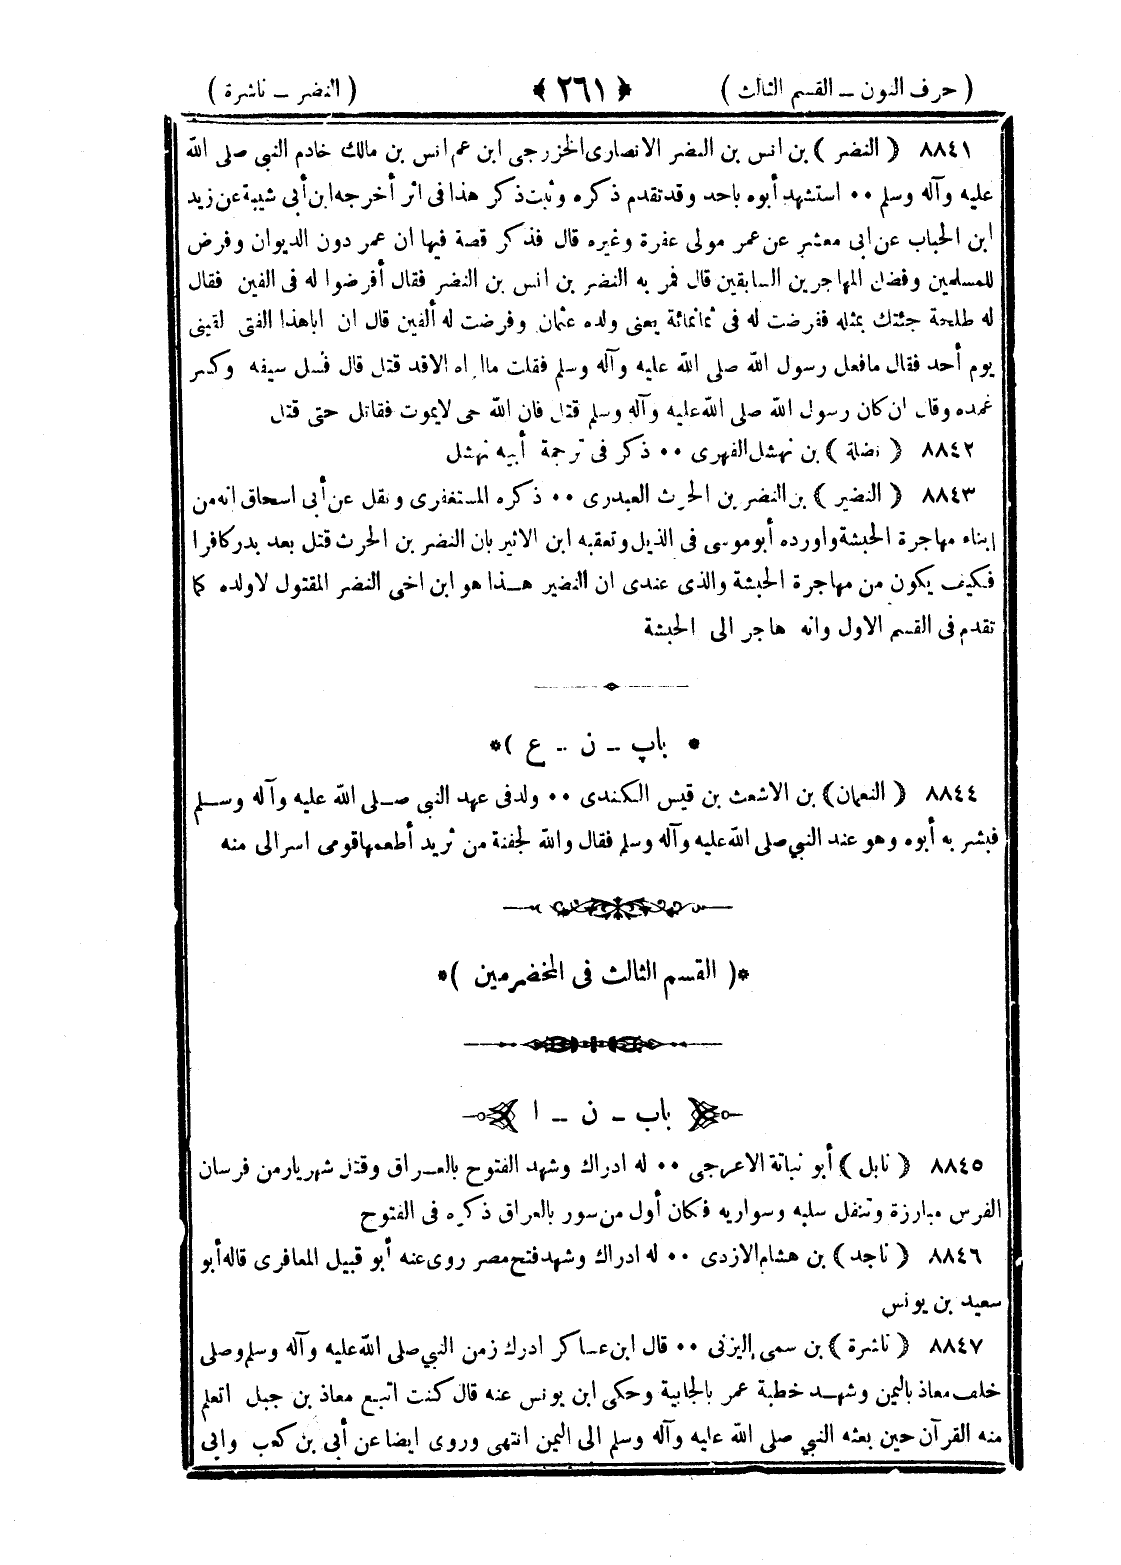 ( حرف النون ــ القسم الثالث ) ﴿ ٢٦١ ﴾ ( النضر ــ ناشرة )
٨٨٤١ ( النضر ) بن انس بن النضر الانصارى الخزرجى ابن عم انس بن مالك خادم النبي صلى الله
عليه وآله وسلم ٠٠ استشهد أبوه باحد وقد تقدم ذكره وثبت ذكر هذا فى اثر أخرجه ابن أبى شيبة عن زيد
ابن الحباب عن ابى معشر عن عمر مولى عفرة وغيره قال فذكر قصة فيها ان عمر دون الديوان وفرض
للمسلمين وفضل المهاجرين السابقين قال فمر به النضر بن انس بن النضر فقال أفرضوا له فى الفين فقال
له طلحة جئتك بمثله ففرضت له فى ثمانمائة يعنى ولده عثمان وفرضت له ألفين قال ان اباهذا الفتى لقينى
يوم أحد فقال مافعل رسول الله صلى الله عليه وآله وسلم فقلت مااراه الاقد قتل قال فسل سيفه وكسر
غمده وقال ان كان رسول الله صلى الله عليه وآله وسلم قتل فان الله حى لايموت فقاتل حتى قتل
٨٨٤٢ ( نضلة ) بن نهشل الفهرى ٠٠ ذكر فى ترجمة أبيه نهشل
٨٨٤٣ ( النضير ) بن النضر بن الحرث العبدرى ٠٠ ذكره المستغفرى ونقل عن أبى اسحاق انه من
إبناء مهاجرة الحبشة واورده أبو موسى فى الذيل وتعقبه ابن الاثير بان النضر بن الحرث قتل بعد بدر كافرا
فكيف يكون من مهاجرة الحبشة والذى عندى ان النضير هــذا هو ابن اخى النضر المقتول لاولده كما
تقدم فى القسم الاول وانه هاجر الى الحبشة
* باب ــ ن ــ ع )*
٨٨٤٤ ( النعمان ) بن الاشعث بن قيس الكندى ٠٠ ولد فى عهد النبي صــلى الله عليه وآله وســلم
فبشر به أبوه وهو عند النبي صلى الله عليه وآله وسلم فقال والله لجفنة من ثريد أطعمها قومى اسر الى منه
*( القسم الثالث فى المخضرمين )*
باب ــ ن ــ ا
٨٨٤٥ ( نابل ) أبو نباتة الاعرجى ٠٠ له ادراك وشهد الفتوح بالعــراق وقتل شهريار من فرسان
الفرس مبارزة وتنفل سلبه وسواريه فكان أول من سور بالعراق ذكره فى الفتوح
٨٨٤٦ ( ناجد ) بن هشام الازدى ٠٠ له ادراك وشهد فتح مصر روى عنه أبو قبيل المعافرى قاله أبو
سعيد بن يونس
٨٨٤٧ ( ناشرة ) بن سمى اليزنى ٠٠ قال ابن عساكر ادرك زمن النبي صلى الله عليه وآله وسلم وصلى
خلف معاذ باليمن وشهــد خطبة عمر بالجابية وحكى ابن يونس عنه قال كنت اتبع معاذ بن جبل اتعلم
منه القرآن حين بعثه النبي صلى الله عليه وآله وسلم الى اليمن انتهى وروى ايضا عن أبى بن كعب وابى